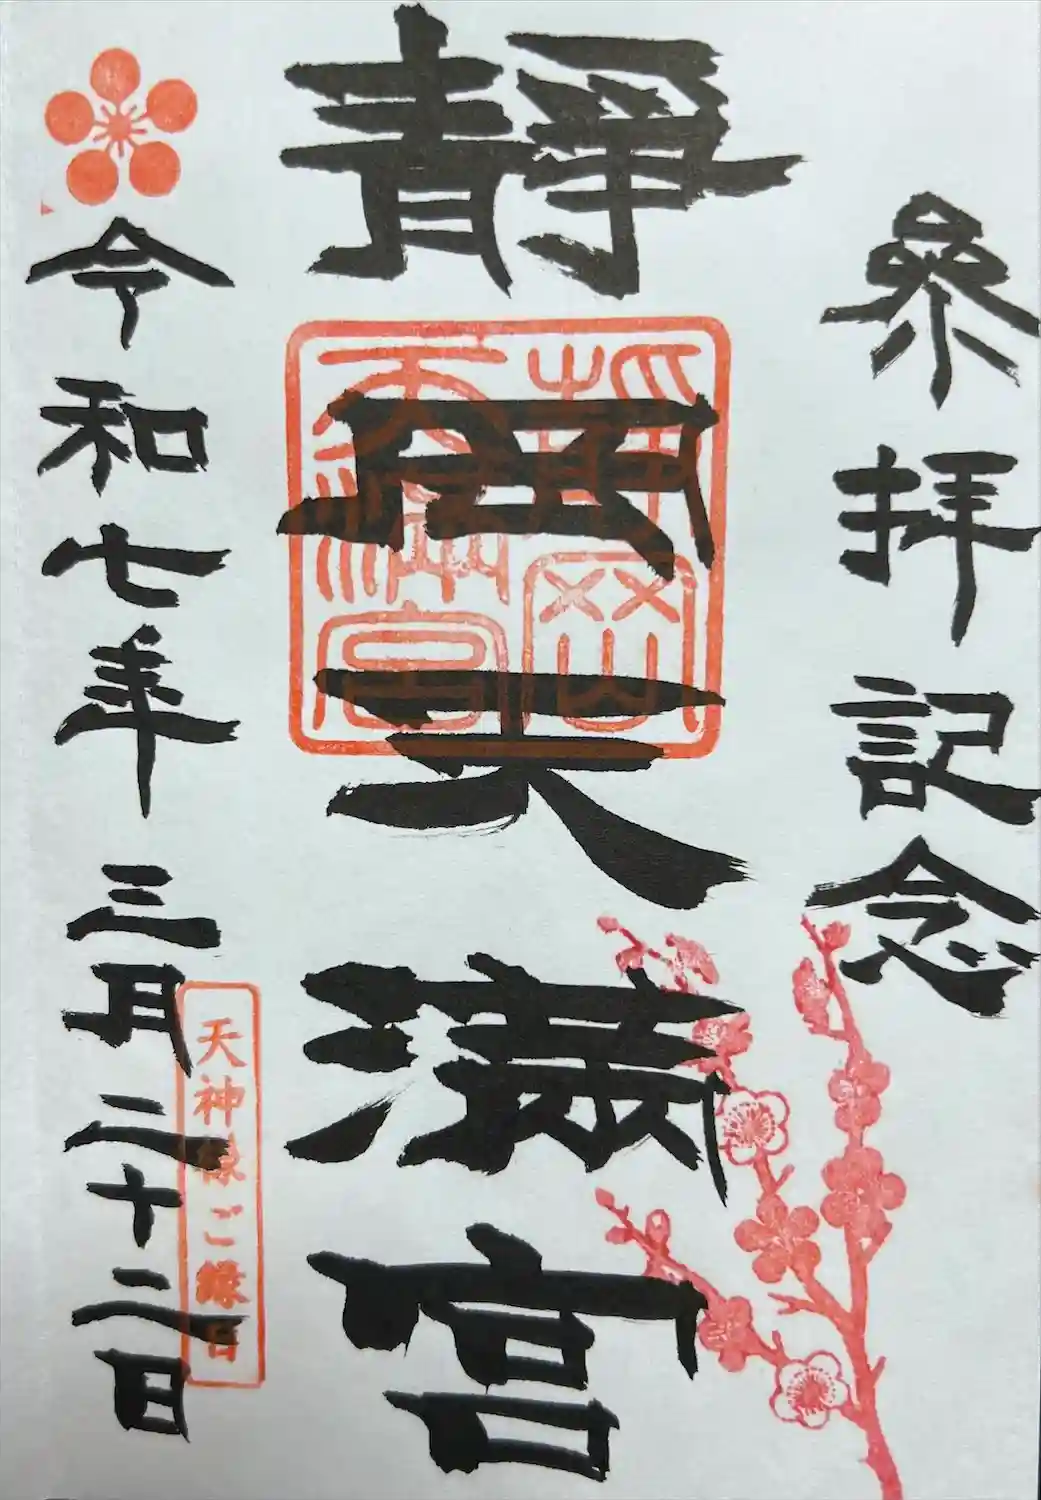 參拝記念
靜岡天満宮
令和七年三月二十二日
天神様ご縁日
靜岡
天満宮